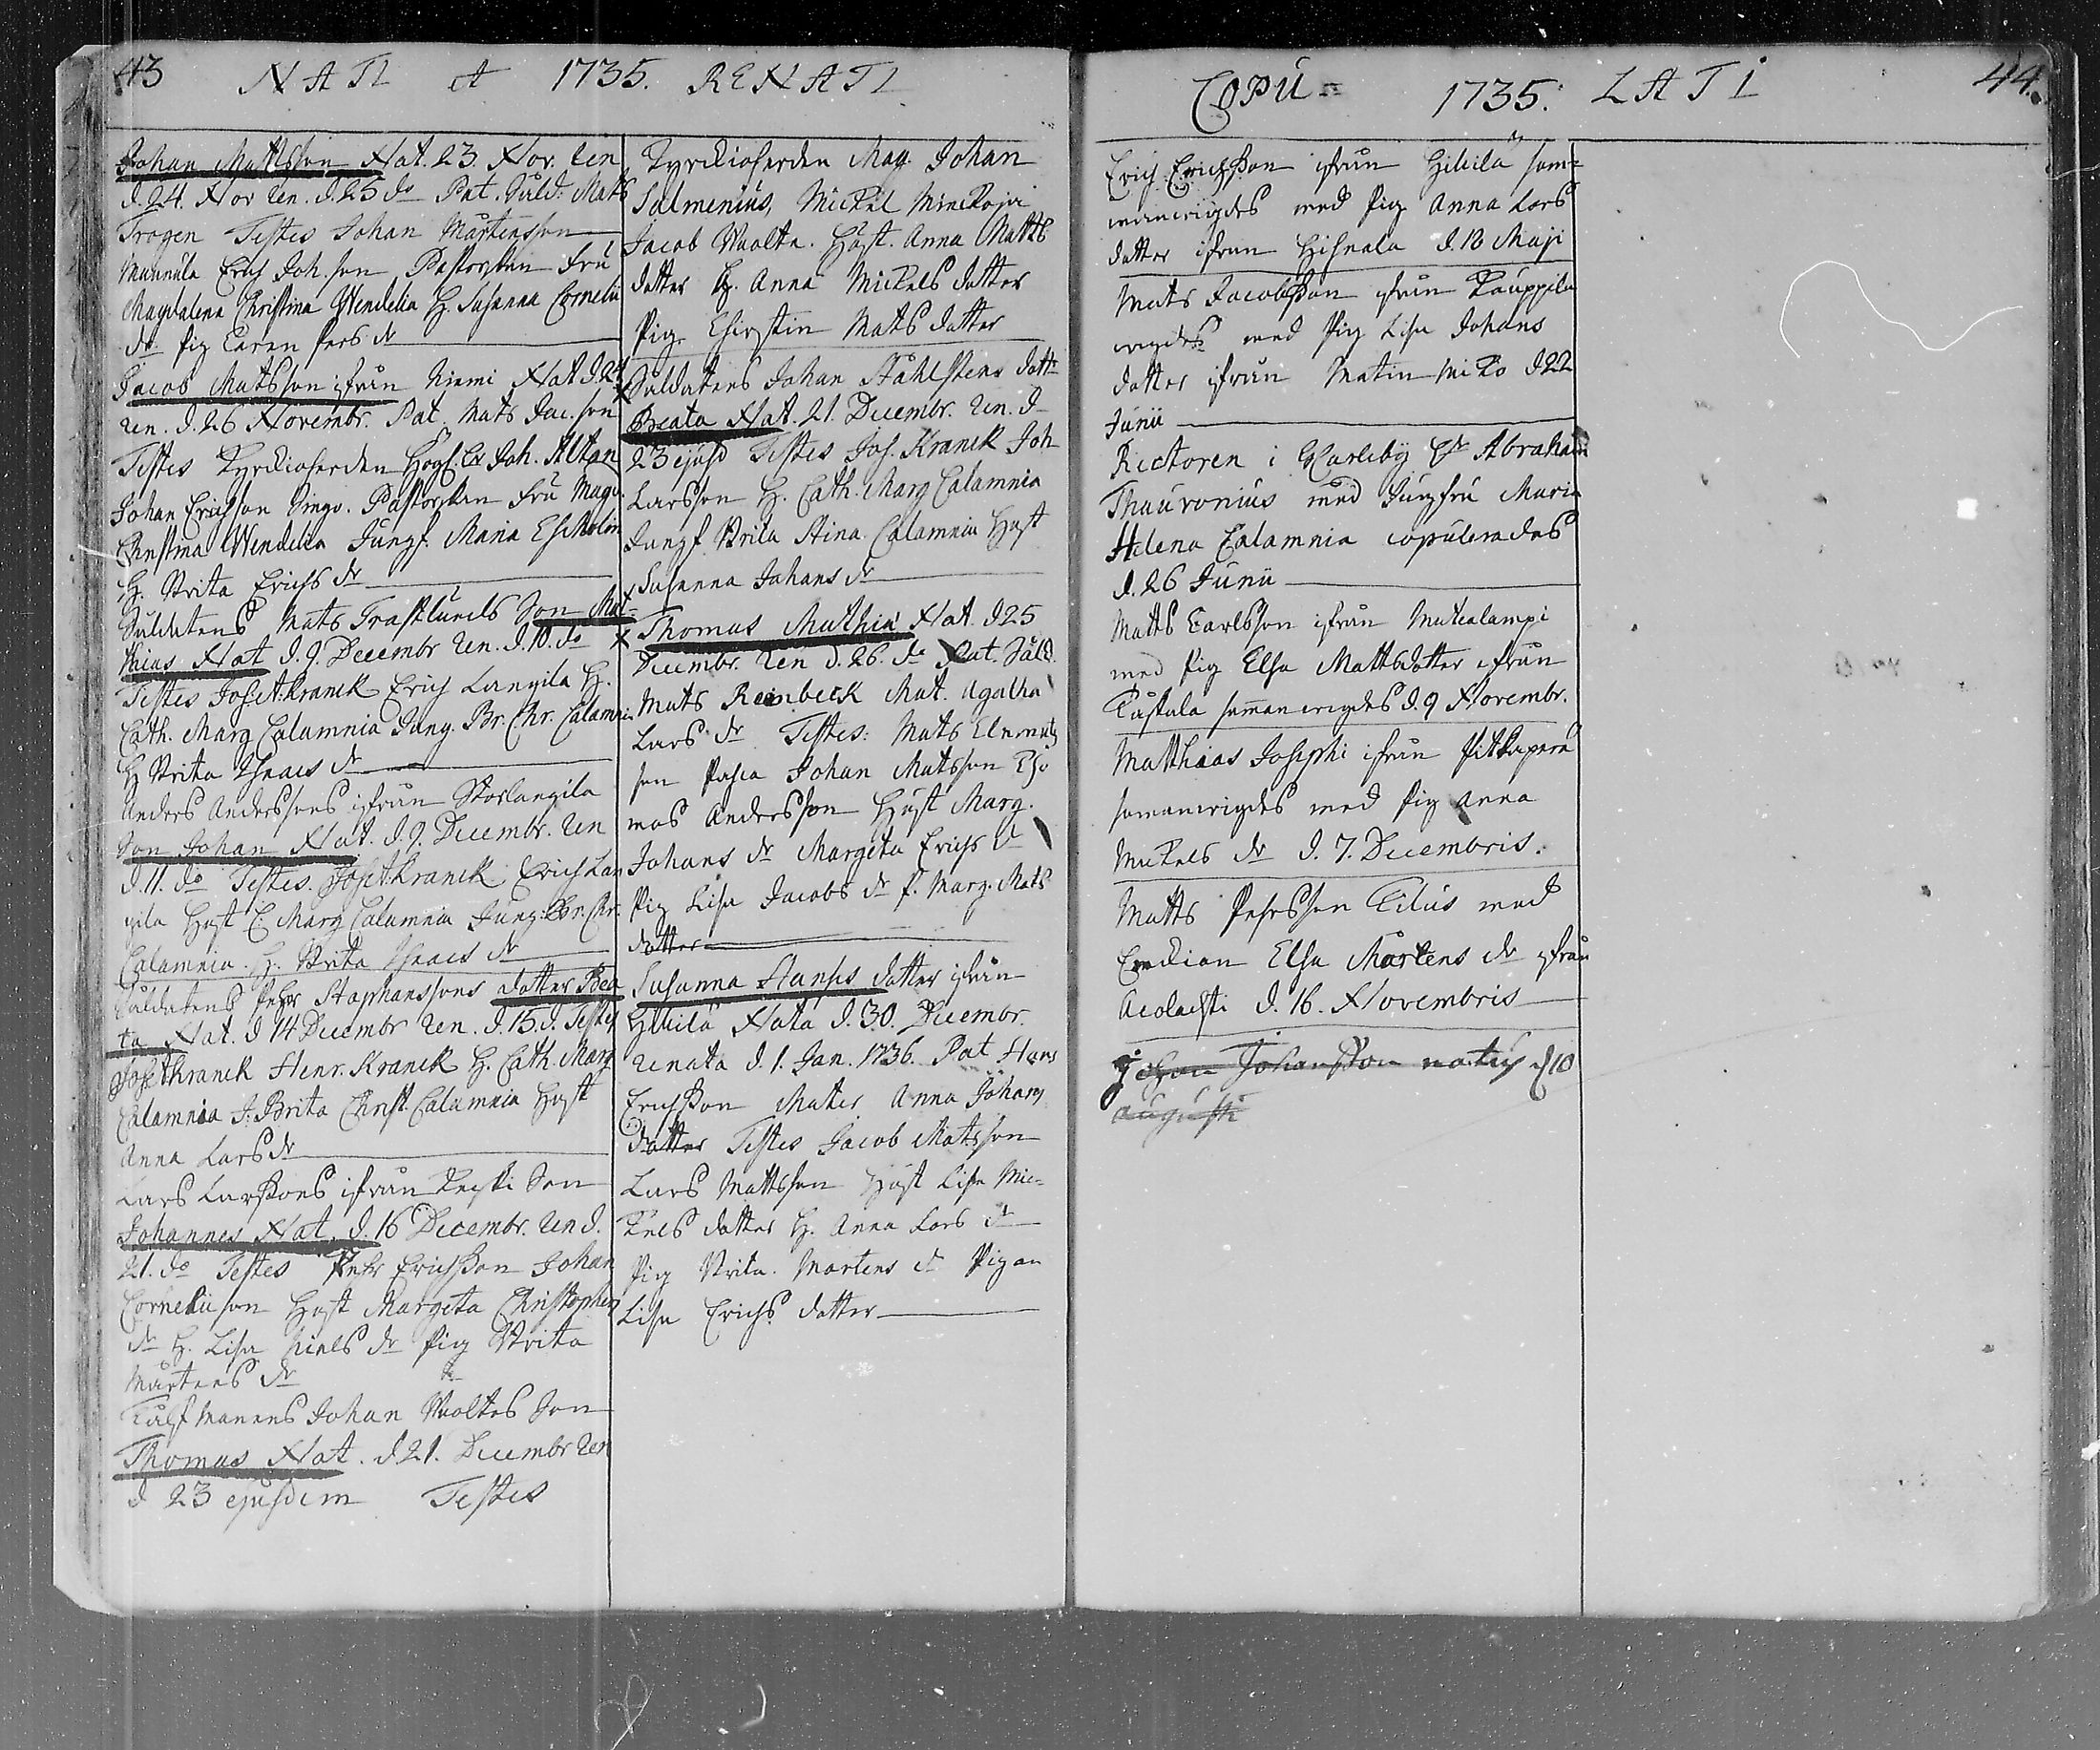 43 NATI et 1735. RENATI
Johan Mattsson Nat. 23. Nov. Ren
d. 24. Nov Ren. d. 25 do Pat. Suld: Mats
Trogen Testes Johan Mårtensson
Mannula Erich Joh. son Pastorskan Fru
Magdalena Christina Wendelia H. Susanna Cornelii
dr Pig Caren Pers dr
Jacob Matsson ifrån Niemi Nat d. 24
Ren. d. 26 Novembr. Pat. Mats Jac. son
Testes Kyrckioherden Joh. Altan
Johan Erichson Pastorskan Fru Magd.
Christina Wendelia Jungf. Maria Escholin
H. Brita Erichs dr
Suldatens Mats Trastlunds Son Mat-
thias Nat d. 9. Decembr Ren. d. 10. do
Testes Josef Kranck Erich Langila H.
Cath. Marg Calamnia Jung. Br. Chr. Calamnia
H Brita Isaacs dr
Anders Anderssons ifrån Storlangila
Son Johan Nat. d. 9. Decembr. Ren
d. 11. do Testes. Josef Kranck Erich Lan
gila Hust C. Marg Calamnia Jung: Br: Chr.
Calamnia. H. Brita Isaacs dr
Suldatens Pehr Staphanssons dotter Bea
ta Nat. d 14 Decembr Ren. d. 15. d. Testes
Josef Kranck Henr. Kranck H. Cath. Marg
Calamnia J. Brita Christ. Calamnia Hust
Anna Lars dr
Lars Larssons ifrån Son
Johannes Nat. d. 16 Decembr. Ren d.
21. do Testes Pehr Ericksson Johan
Cornelii son Hust Margeta Christophers
dr H. Lisa Niels dr Pig Brita
Mårtens dr
Manens Johan Waltes Son
Thomas Nat. d. 21. Decembr Ren
d 23 ejusdem Testes
Kyrckioherden Mag. Johan
Salmenius, Mickel
Jacob Waolta. Hust. Anna Matts
dotter H. Anna Mickels dotter
Pig. Chirstin Mats dotter
Suldatens Johan Ståhlstens dottr
Beata Nat. 21. Decembr. Ren. d
23 ejusd Testes Jos. Kranck Joh
Larsson H. Cath. Marg Calamnia
Jungf Brita Stina Calamnia Hust
Susanna Johans dr
Thomas Mathiæ Nat. d 25
Decembr. Ren d. 26. do Pat. Suld.
Mats Reenbeck Mat. Agatha
Lars dr Testes: Mats Elements
son Pasca Johan Matsson Tho
mas Andersson Hust Marg.
Johans dr Margeta Erichs dr
Pig Lisa Jacobs dr P. Marg. Mats
dotter
Susanna Hanses dotter ifrån
Hihilä Nata d. 30. Decembr.
Renata d. 1. Jan. 1736. Pat Hans
Ericksson Mater Anna Johans
dotter Testes Jacob Matsson
Lars Mattsson Hust Lisa Mic-
kels dotter H. Anna Lars dr
Pig Brita. Mårtens dr Pigan
Lisa Erichs dotter
COPU= 1735. LATI 44.
Erich Erichsson ifrån Hihilä sam=
manwigdes med Pig Anna Lars
dotter ifrån Hihnala d. 18 Maji
Mats Jacobsson ifrån Kauppila
wigdes med Pig Lisa Johans
dotter ifrån Matin Miko d 22
Junii
Rectoren i GCarleby Hr Abraham
Thauvonius med Jungfru Maria
Helena Calamnia copulerades
d. 26 Junii
Matts Carlsson ifrån Mutcalampi
med Pig Elsa Mattsdotter ifrån
Kustula samanwigdes d. 9 Novembr.
Matthias Josephi ifrån Pitkaperä
samanwigdes med Pig Anna
Mickels dr d. 7. Decembris.
Matts Pehrsson Tilus med
Enckian Elsa Mårtens dr ifrån
d. 16. Novembris
Johan Johansson natus d 10
augusti